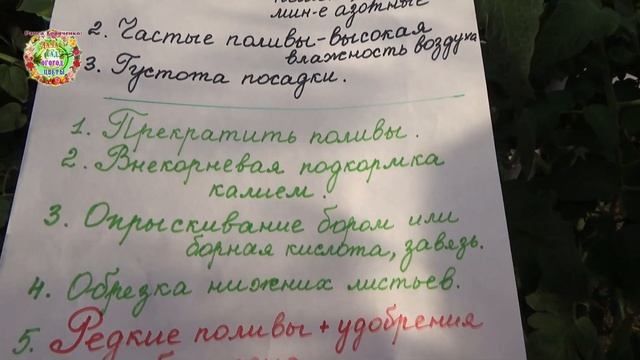 мин-е азотные
2. Частые поливы-высокая
влажность воздуха
3. Густота посадки.
1. Прекратить поливы.
2. Внекорневая подкормка
калием.
3. Опрыскивание бором или
борная кислота, завязь.
4. Обрезка нижних листьев.
5. Редкие поливы + удобрения